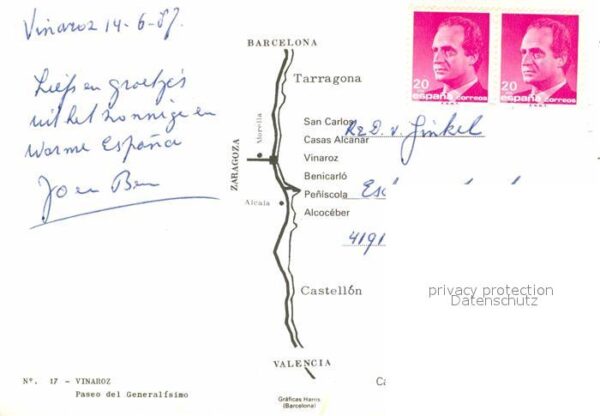 Vinaroz 14-6-87.
Liefs en groetjes
uit het zonnige en
warme España
Jo en Ben
BARCELONA
Tarragona
San Carlos
Casas Alcanar
Vinaroz
Benicarló
Peñíscola
Alcocéber
Morella
ZARAGOZA
Alcalá
Castellón
VALENCIA
20
españa correos
20
españa correos
D. v. Ginkel
4191
privacy protection
Datenschutz
Nº. 17 - VINAROZ
Paseo del Generalísimo
Gráficas Harris
(Barcelona)